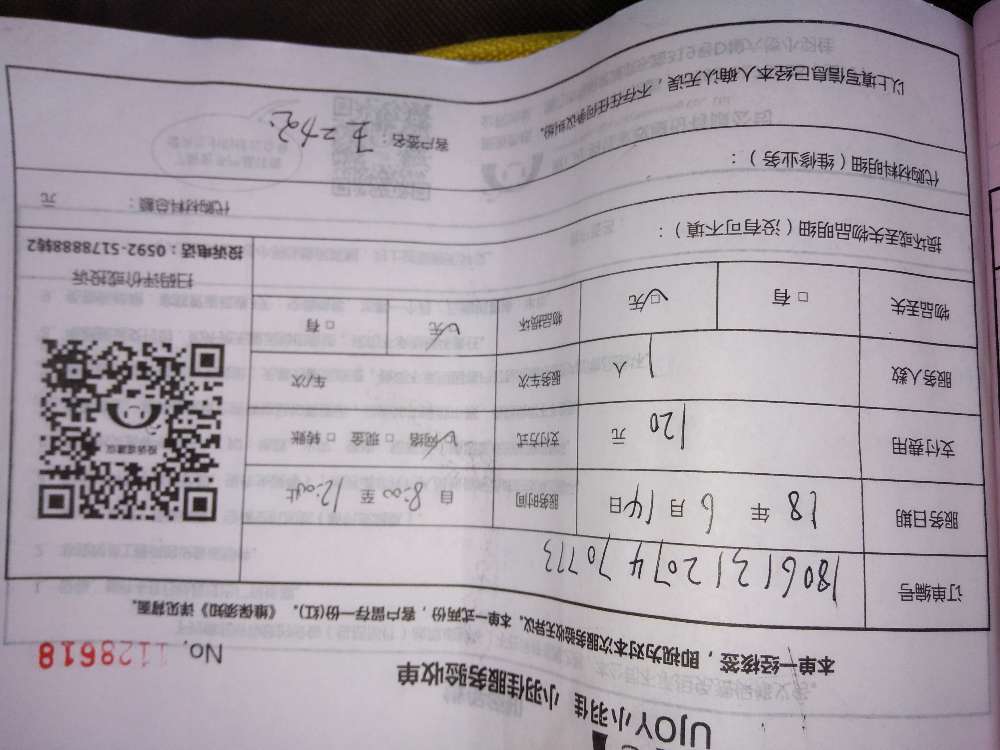 UJOY小羽佳 小羽佳服务验收单
No. 1128618
本单一经核签，即视为对本次服务验收无异议。本单一式两份，客户留存一份(红)。《维保须知》详见背面。
订单编号 18061312074 70773
服务日期 18 年 6 月 14 日 服务时间 自 8:00 至 12:00止
支付费用 120 元 支付方式 网络 □ 现金 □ 转账
服务人数 1 人 服务车次 车/次
物品丢失 □ 有 □ 无 物品损坏 无 □ 有
投诉建议
扫码评价或投诉
投诉电话：0592-5178888转2
损坏或丢失物品明细（没有可不填）：
代购材料明细（维修业务）：
代购材料总额： 元
以上填写信息已经本人确认无误，不存在任何争议纠纷。
客户签名：